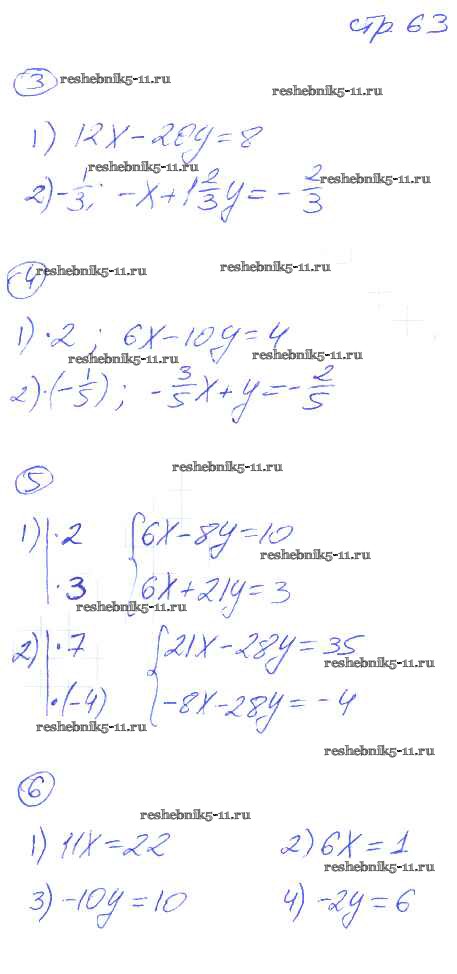 стр. 63
③ reshebnik5-11.ru
reshebnik5-11.ru
1) 12x - 20y = 8
reshebnik5-11.ru
2) -1/3; -x + 1 2/3 y = -2/3 reshebnik5-11.ru
④ reshebnik5-11.ru reshebnik5-11.ru
1) ·2; 6x - 10y = 4
reshebnik5-11.ru reshebnik5-11.ru
2) ·(-1/5); -3/5 x + y = -2/5
reshebnik5-11.ru
⑤
1) | ·2 { 6x - 8y = 10
reshebnik5-11.ru
| ·3 { 6x + 21y = 3
reshebnik5-11.ru
2) | ·7 { 21x - 28y = 35
reshebnik5-11.ru
| ·(-4) { -8x - 28y = -4
reshebnik5-11.ru
reshebnik5-11.ru
⑥
reshebnik5-11.ru
1) 11x = 22 2) 6x = 1
reshebnik5-11.ru
3) -10y = 10 4) -2y = 6